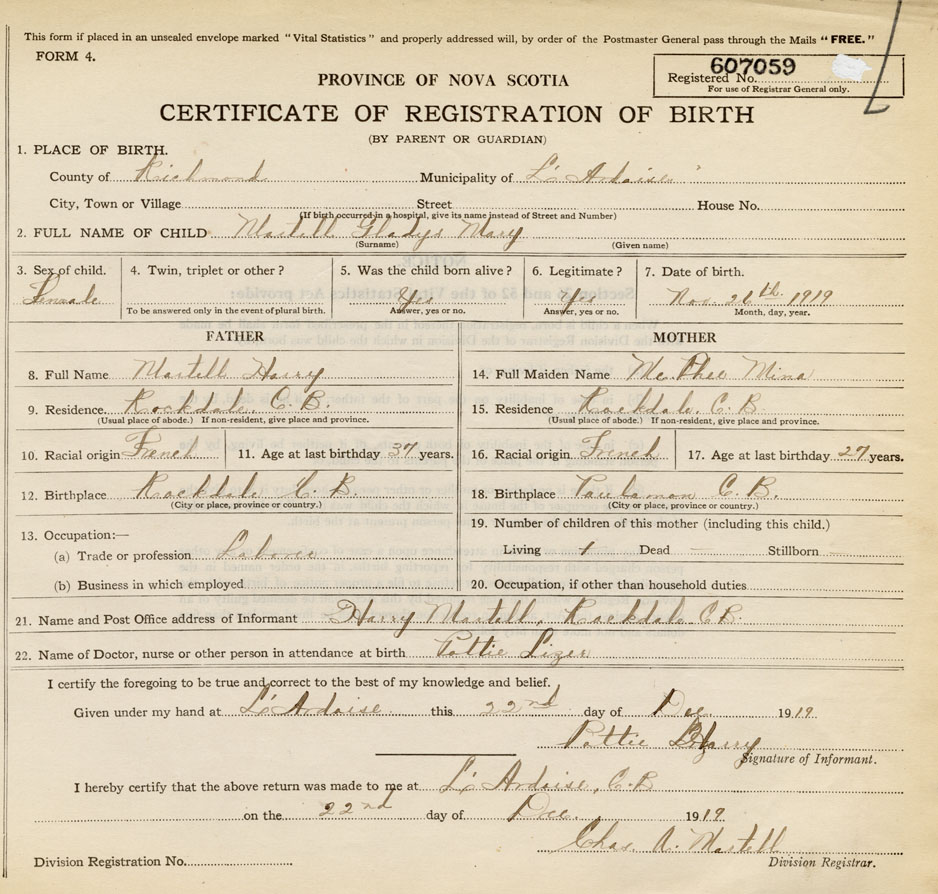 This form if placed in an unsealed envelope marked "Vital Statistics" and properly addressed will, by order of the Postmaster General pass through the Mails "FREE."
FORM 4.
607059
Registered No.
For use of Registrar General only.
PROVINCE OF NOVA SCOTIA
CERTIFICATE OF REGISTRATION OF BIRTH
(BY PARENT OR GUARDIAN)
1. PLACE OF BIRTH.
County of Richmond Municipality of L'Ardoise
City, Town or Village Street House No.
(If birth occurred in a hospital, give its name instead of Street and Number)
2. FULL NAME OF CHILD Martell Gladys Mary
(Surname) (Given name)
3. Sex of child. 4. Twin, triplet or other? 5. Was the child born alive? 6. Legitimate? 7. Date of birth.
Female Yes Yes Nov. 1919
To be answered only in the event of plural birth. Answer, yes or no. Answer, yes or no. Month, day, year.
FATHER
8. Full Name Martell Harry
9. Residence Rockdale, C.B.
(Usual place of abode.) If non-resident, give place and province.
10. Racial origin French 11. Age at last birthday 37 years.
12. Birthplace Rockdale C.B.
(City or place, province or country.)
13. Occupation:—
(a) Trade or profession Laborer
(b) Business in which employed
MOTHER
14. Full Maiden Name McPhee Mina
15. Residence Rockdale, C.B.
(Usual place of abode.) If non-resident, give place and province.
16. Racial origin French 17. Age at last birthday 27 years.
18. Birthplace C.B.
(City or place, province or country.)
19. Number of children of this mother (including this child.)
Living 1 Dead — Stillborn —
20. Occupation, if other than household duties
21. Name and Post Office address of Informant Harry Martell, Rockdale C.B.
22. Name of Doctor, nurse or other person in attendance at birth Pottie Lizer
I certify the foregoing to be true and correct to the best of my knowledge and belief.
Given under my hand at L'Ardoise this 22nd day of Dec 1919.
Pottie Harry
Signature of Informant.
I hereby certify that the above return was made to me at L'Ardoise, C.B
on the 22nd day of Dec. 1919
Chas. A. Martell
Division Registration No. Division Registrar.